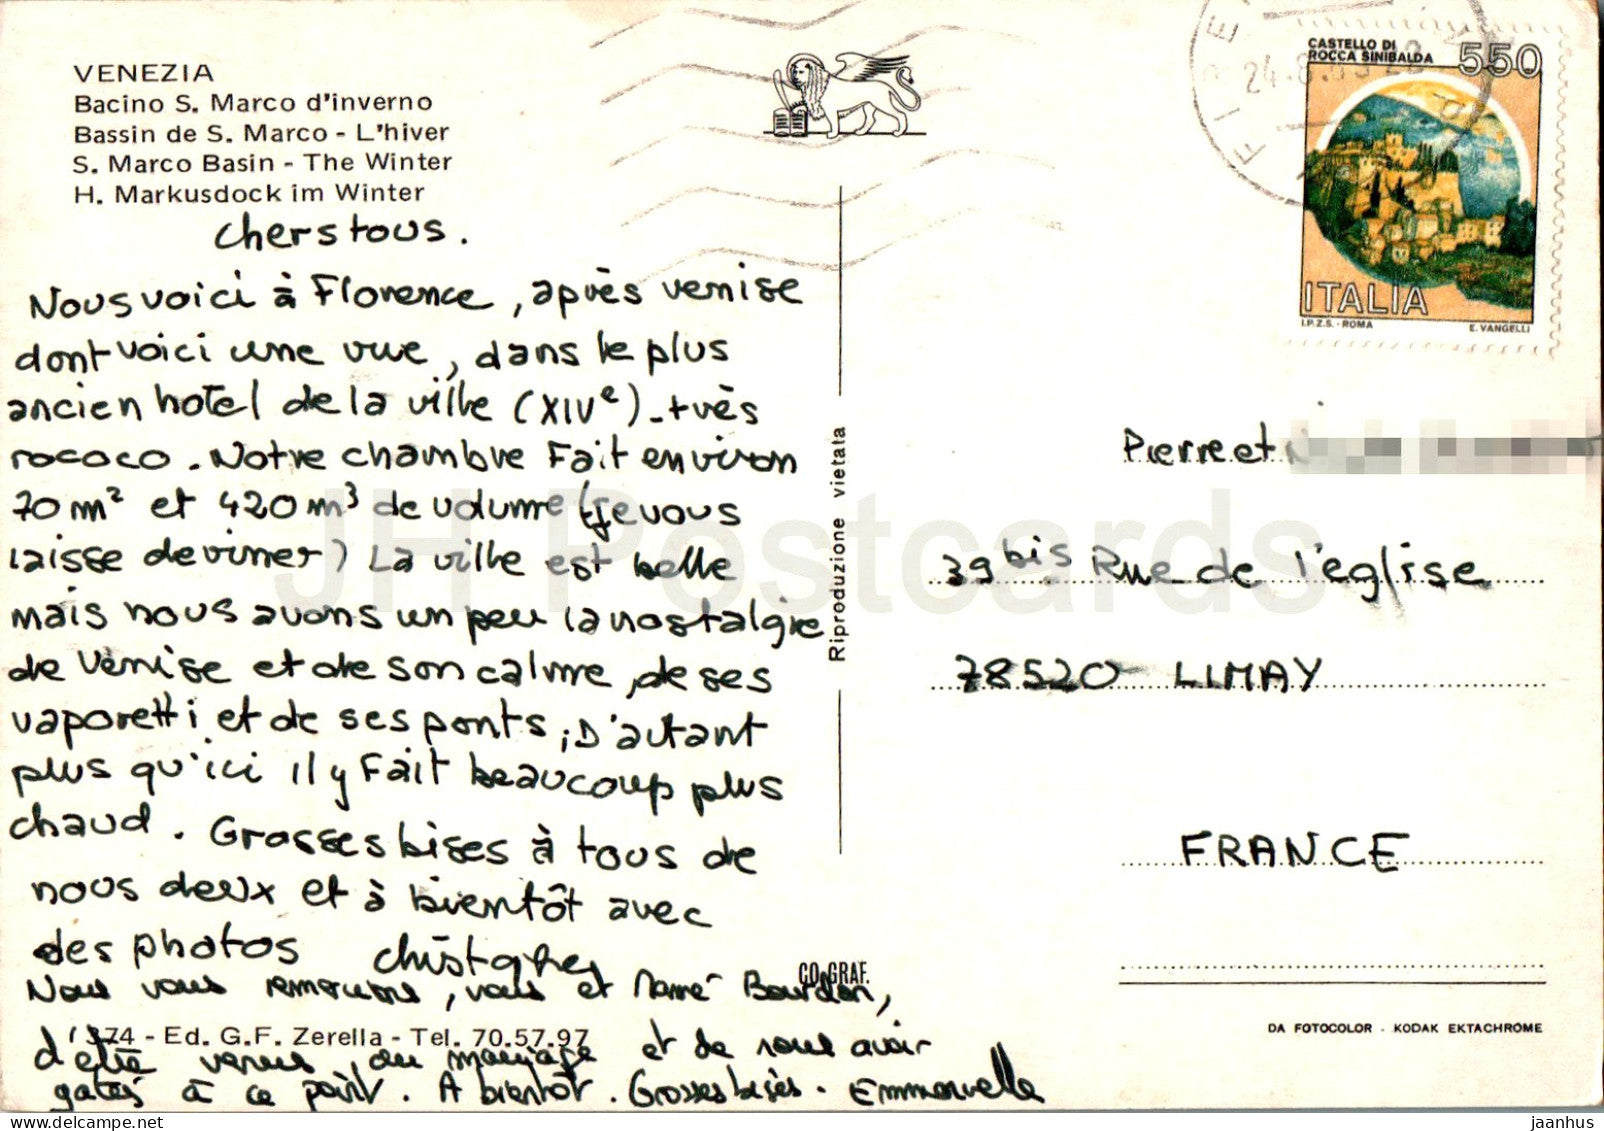 VENEZIA
Bacino S. Marco d'inverno
Bassin de S. Marco - L'hiver
S. Marco Basin - The Winter
H. Markusdock im Winter
Chers tous.
Nous voici à Florence, après venise
dont voici une vue, dans le plus
ancien hotel de la ville (XIVe) - très
rococo. Notre chambre Fait environ
70 m² et 420 m³ de volume (je vous
laisse deviner) La ville est belle
mais nous avons un peu la nostalgie
de Venise et de son calme, de ses
vaporetti et de ses ponts, D'autant
plus qu'ici il y Fait beaucoup plus
chaud. Grosses bises à tous de
nous deux et à bientôt avec
des photos Christophe
Nous vous remercions, vous et Mamé Bourdon,
d'être venus au mariage et de nous avoir
gatés à ce point. A bientôt. Grosses bises. Emmanuelle
374 - Ed. G.F. Zerella - Tel. 70.57.97
CO.GRAF.
Riproduzione vietata
CASTELLO DI
ROCCA SINIBALDA
550
ITALIA
I.P.Z.S. - ROMA
E. VANGELLI
FIRE
24.8.
Pierre et
39 bis Rue de l'église
78520 LIMAY
FRANCE
DA FOTOCOLOR - KODAK EKTACHROME
JH Postcards
jaanhus / delcampe.net